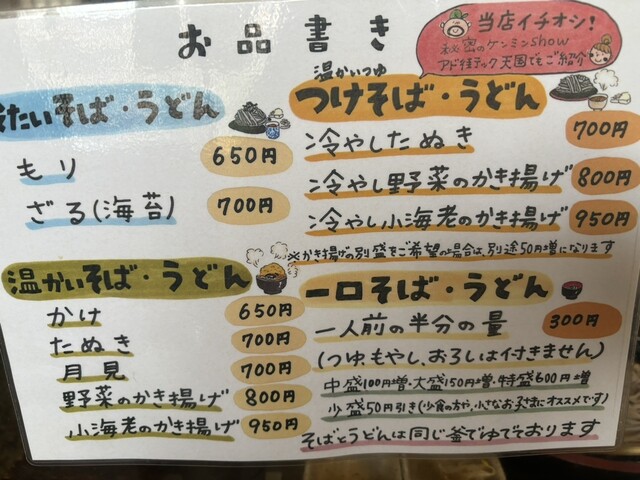 お品書き
当店イチオシ！
秘密のケンミンshow
アド街ック天国でもご紹介
冷たいそば・うどん
もり 650円
ざる(海苔) 700円
温かいそば・うどん
かけ 650円
たぬき 700円
月見 700円
野菜のかき揚げ 800円
小海老のかき揚げ 950円
温かいつゆ
つけそば・うどん
冷やしたぬき 700円
冷やし野菜のかき揚げ 800円
冷やし小海老のかき揚げ 950円
※かき揚げの別盛をご希望の場合は、別途50円増になります
一口そば・うどん
一人前の半分の量 300円
(つゆ、もやし、おろしは付きません)
中盛100円増・大盛150円増・特盛600円増
少盛50円引き(少食の方や、小さなお子さまにオススメです)
そばとうどんは同じ釜でゆでております